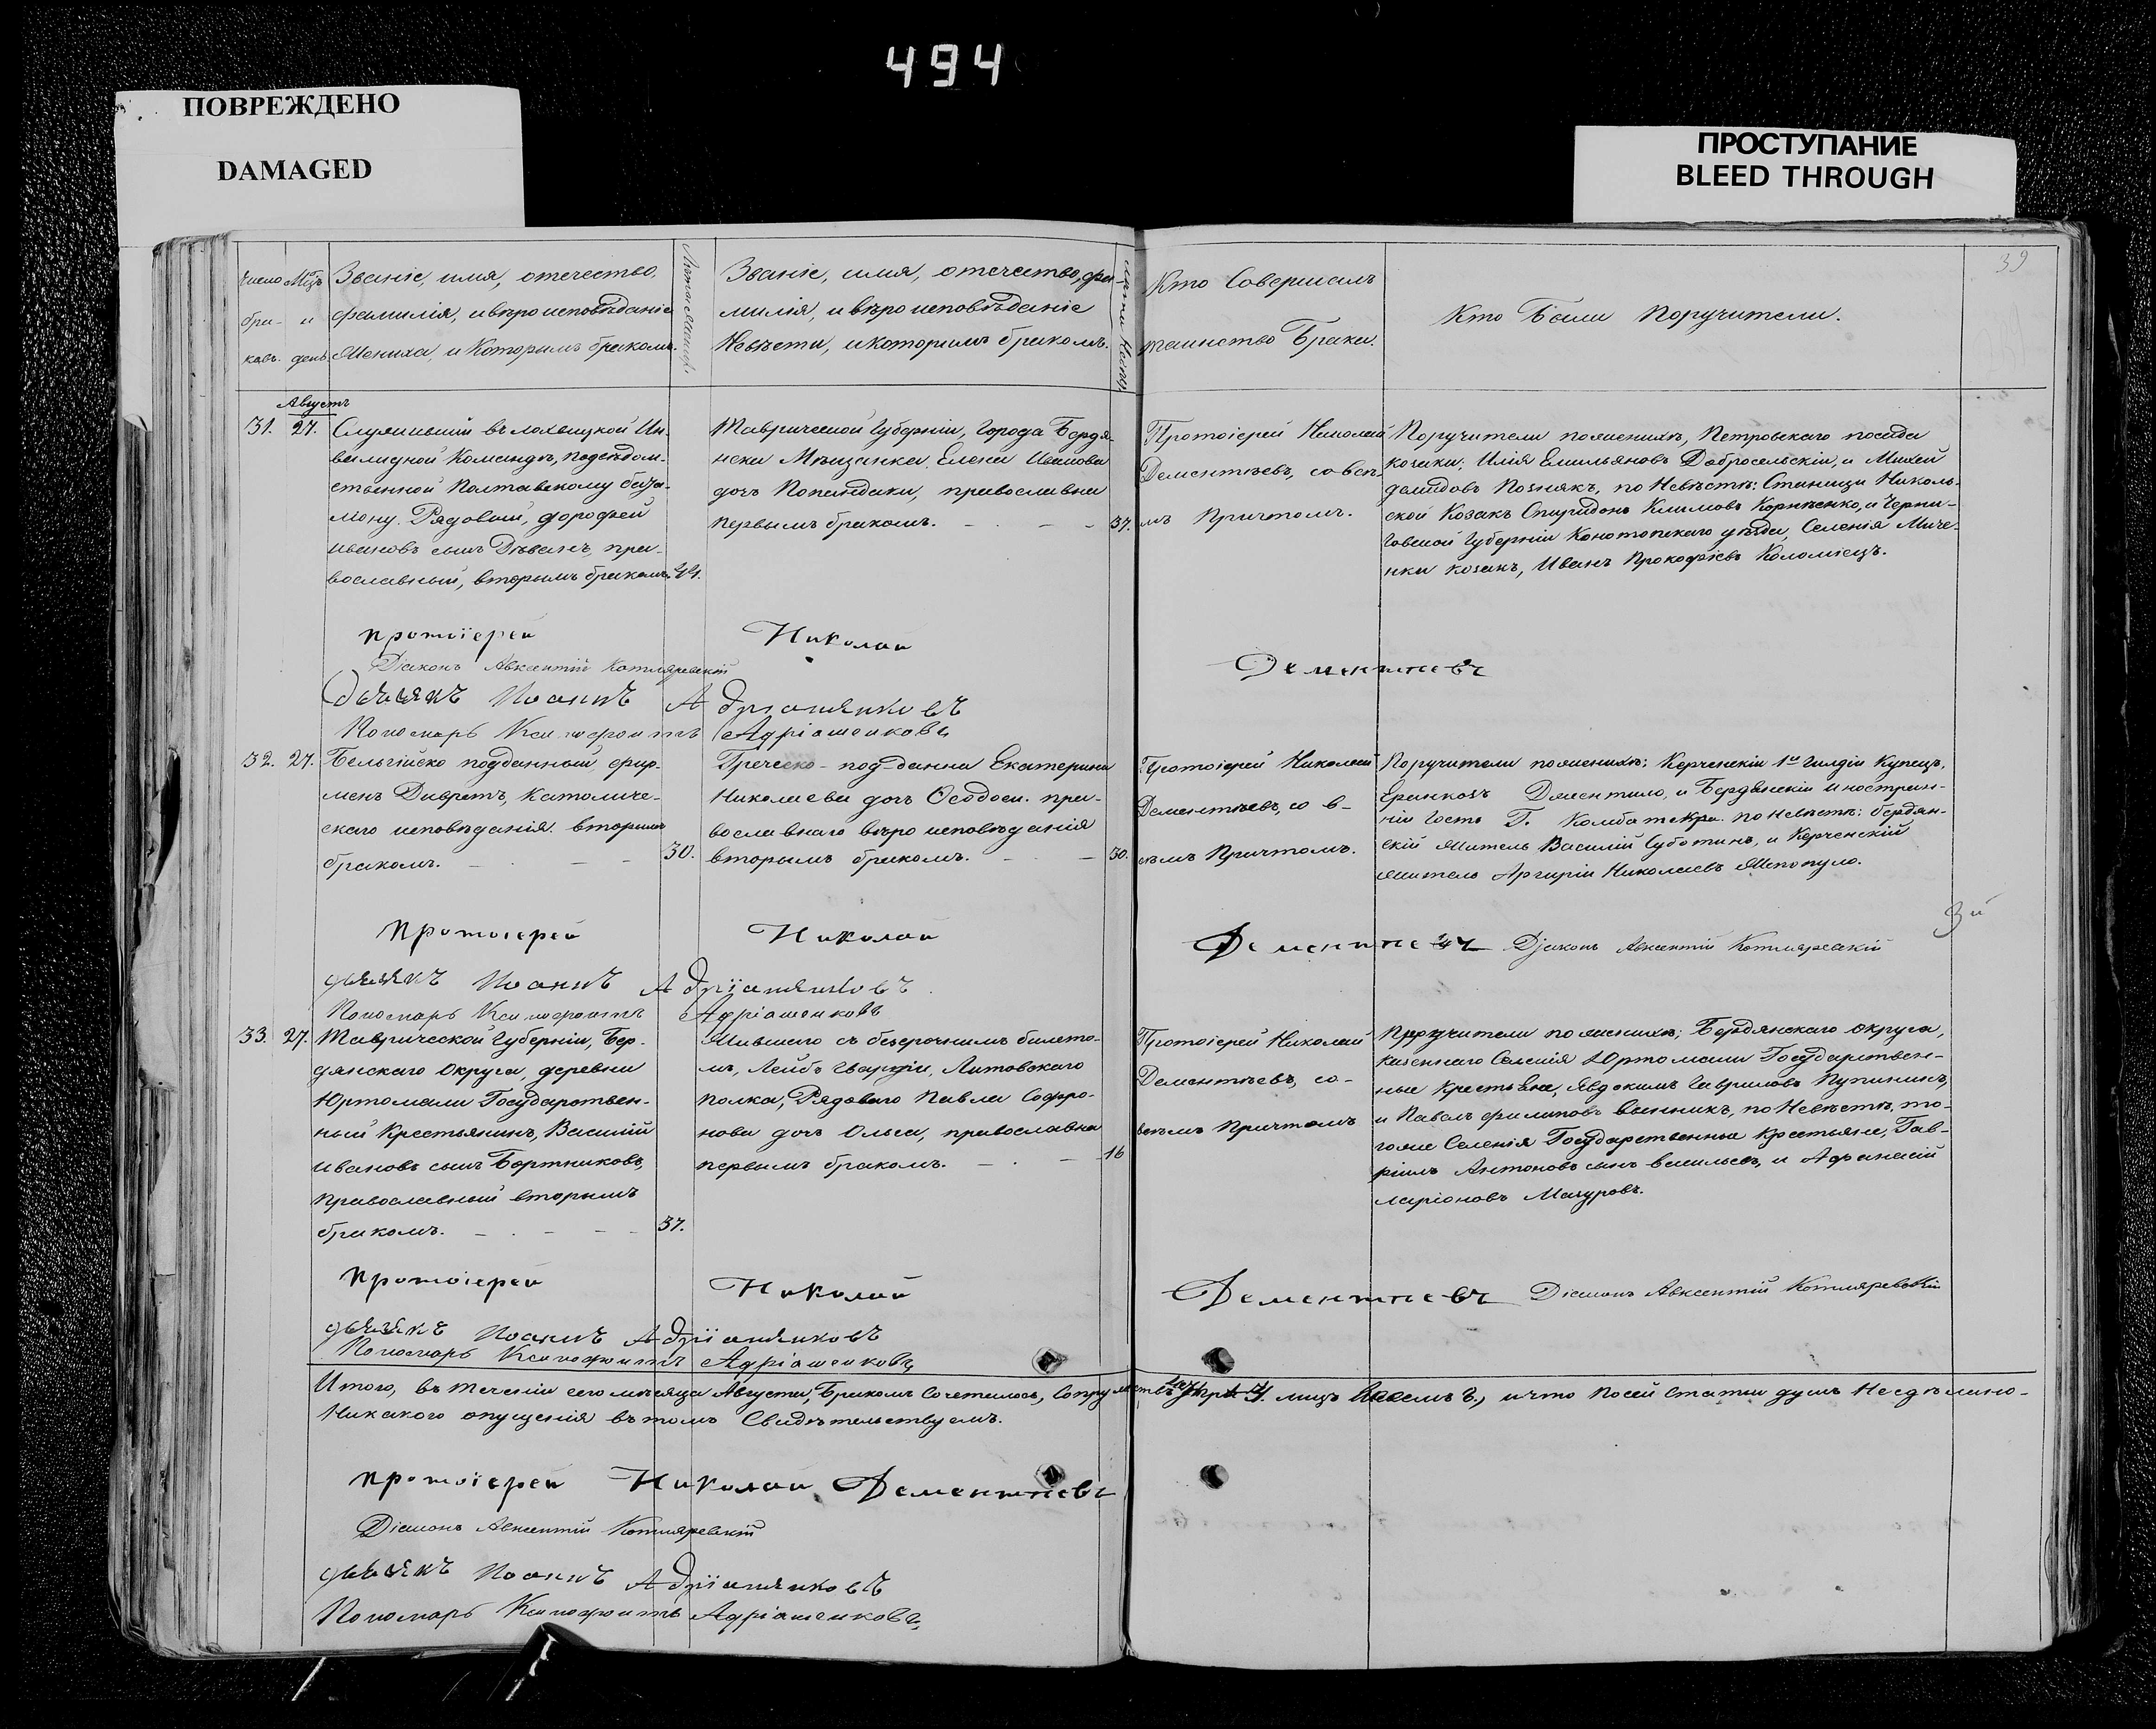 494
ПОВРЕЖДЕНО
DAMAGED
ПРОСТУПАНИЕ
BLEED THROUGH
39
Число бра- ковъ.
Мцъ и день.
Званіе, имя, отечество,
фамилія, и вѣроисповѣданіе
Жениха, и которымъ бракомъ.
Званіе, имя, отечество, фа-
милія, и вѣроисповѣданіе
Невѣсты, и которымъ бракомъ.
Кто Совершалъ
таинство Брака.
Кто Были Поручители.
Августъ
31. 27. Служившій въ лохвицкой Ин-
валидной Командѣ, подвѣдом-
ственной Полтавскому бата-
ліону. Рядовый, дорофей
ивановъ сынъ Дѣвянъ, пра-
вославный, вторымъ бракомъ. 44.
Таврической Губерніи, города Бердя-
нска Мѣщанка Елена Иванова
дочь Попандаки, православна
первымъ бракомъ. 37.
Протоіерей Николай
Дементѣевъ, со всѣ-
мъ Причтомъ.
Поручители по женихѣ, Петровскаго посада
козаки; Илія Емильяновъ Добросельскій, и Михей
демидовъ Познякъ, по Невѣстѣ: Станицы Николь-
ской Козакъ Спиридонъ Климовъ Корнѣенко, и Черни-
говской Губерніи Конотопскаго уѣзда, Селенія Миче-
нки козакъ, Иванъ Прокофіевъ Коломіецъ.
протоіерей Николай Дементіевъ
Діаконъ Авксентій Котляревскій
дьячекъ Іоаннъ Адріяшенковъ
Пономарь Ксенофонтъ Адріашенковъ
32. 27. Бельгійско подданный фир-
менъ Дивретъ, Католиче-
скаго исповѣданія. вторымъ
бракомъ. 30.
Греческо-под-данна Екатерина
Николаева дочь Феодоси. пра-
вославнаго вѣроисповѣданія
вторымъ бракомъ. 30.
Протоіерей Николай
Дементѣевъ, со в-
сѣмъ Причтомъ.
Поручители по женихѣ: Керченскій 1й Гилдіи Купецъ,
и Бердянскій иностран-
ній Гость Г. по Невѣстѣ: бердян-
скій житель Василій Суботинъ, и Керченскій
житель Аргирій Николаевъ Мепопуло.
3й
протоіерей Николай Дементіевъ Діаконъ Авксентій Котляревскій
дьячекъ Іоаннъ Адріяшенковъ
Пономарь Ксенофонтъ Адріашенковъ
33. 27. Таврической Губерніи, Бер-
дянскаго Округа, деревни
Юртомали Государствен-
ный Крестьянинъ, Василій
ивановъ сынъ Бортниковъ,
Православный вторымъ
бракомъ. 37.
Жившаго съ безсрочнымъ билето-
мъ, Лейбъ Гвардіи, Литовскаго
полка, Рядоваго Павла Софро-
нова дочь Ольга, православна
первымъ бракомъ. 16
Протоіерей Николай
Дементѣевъ, со-
всѣмъ Причтомъ
Поручители по женихѣ; Бердянскаго округа,
казеннаго Селенія Юртомали Государствен-
ные Крестьяне, Явдокимъ Гавриловъ Пупининъ,
и Павелъ филиповъ Винникъ, по Невѣстѣ, то-
гоже Селенія Государственные Крестьяне, Гав-
ріилъ Антоновъ сынъ васильевъ, и Афанасій
ларіоновъ Мазуровъ.
протоіерей Николай Дементіевъ Діаконъ Авксентій Котляревскій
дьячекъ Іоаннъ Адріяшенковъ
Пономарь Ксенофонтъ Адріашенковъ
Итого, въ теченіи сего мѣсяца Августа, Бракомъ Сочеталось, Супружествъ лицъ и что посей Статьи душъ Несдѣлано-
Никакого опущенія въ томъ Свидѣтельствуемъ.
протоіерей Николай Дементіевъ
Діаконъ Авксентій Котляревскій
дьячекъ Іоаннъ Адріяшенковъ
Пономарь Ксенофонтъ Адріашенковъ